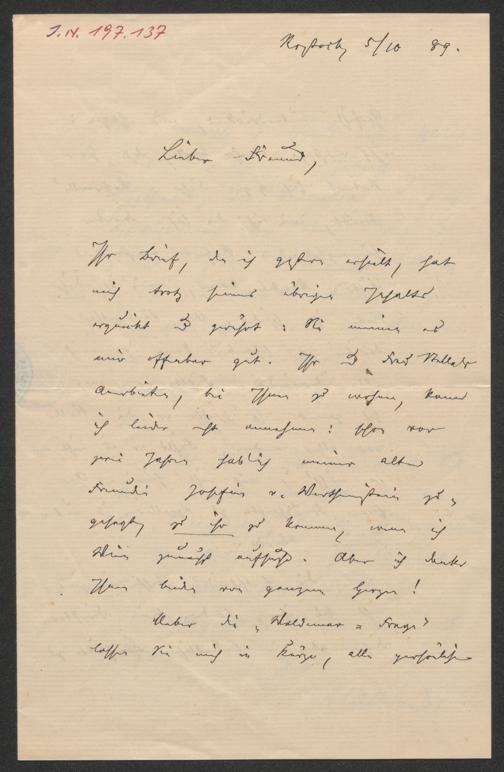 I.N. 197.137
Rostock, 5/10 89.
Lieber Freund,
Ihr Brief, den ich gestern erhielt, hat
mich trotz seines übrigen Inhalts
erquickt & gerührt: Sie meinen es
mir offenbar gut. Ihr & Frau
Anerbieten, bei Ihnen zu wohnen, kann
ich leider nicht annehmen: schon vor
zwei Jahren hab' ich meiner alten
Freundin Josefine v. Wertheimstein zu-
gesagt, zu ihr zu kommen, wenn ich
Wien zunächst aufsuche. Aber ich danke
Ihnen beiden von ganzem Herzen!
Ueber die „Waldemar"-Frage
lassen Sie mich in Kürze, alles persönliche